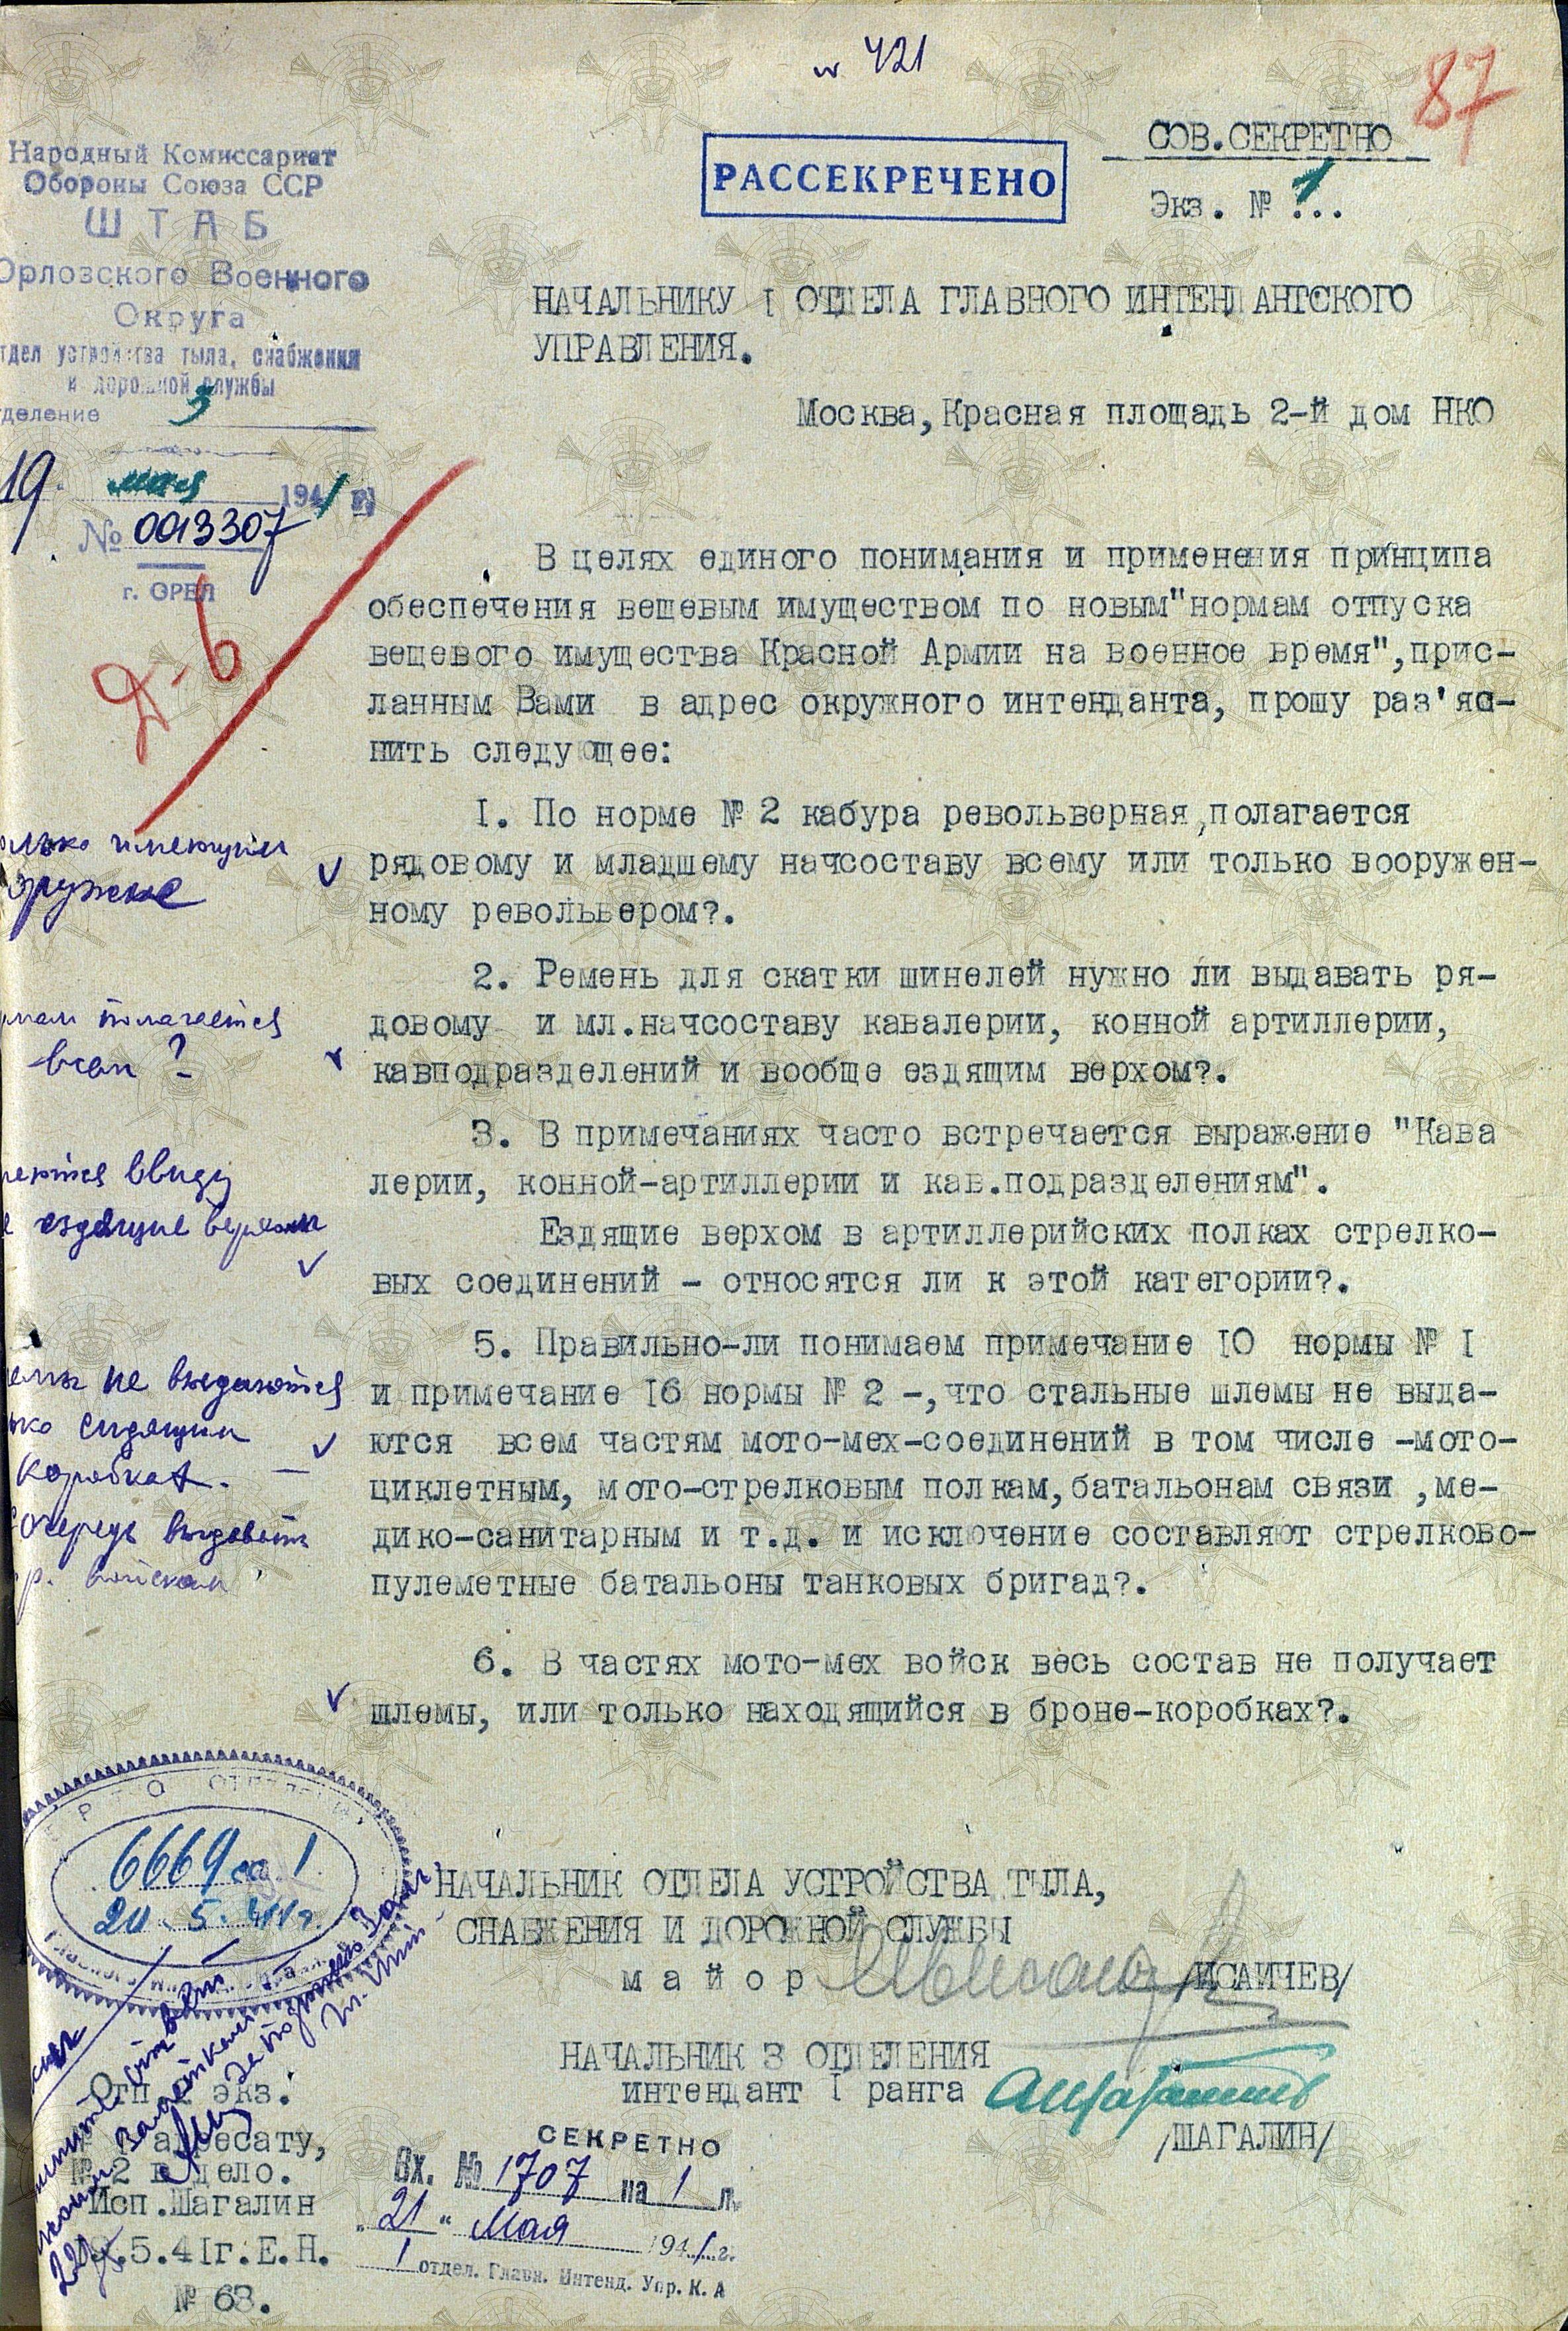 № 421
87
СОВ.СЕКРЕТНО
РАССЕКРЕЧЕНО
Экз. № 1...
Народный Комиссариат
Обороны Союза ССР
ШТАБ
Орловского Военного
Округа
тдел устройства тыла, снабжения
и дорожной службы
деление 3
19. мая 1941 г.
№ 0013307
г. ОРЕЛ
Д-6
НАЧАЛЬНИКУ I ОТДЕЛА ГЛАВНОГО ИНТЕНДАНТСКОГО
УПРАВЛЕНИЯ.
Москва, Красная площадь 2-й дом НКО
В целях единого понимания и применения принципа
обеспечения вещевым имуществом по новым "нормам отпуска
вещевого имущества Красной Армии на военное время", прис-
ланным Вами в адрес окружного интенданта, прошу раз'яс-
нить следующее:
I. По норме № 2 кабура револьверная, полагается
рядовому и младшему начсоставу всему или только вооружен-
ному револьвером?.
олько имеющим
оружие
2. Ремень для скатки шинелей нужно ли выдавать ря-
довому и мл.начсоставу кавалерии, конной артиллерии,
кавподразделений и вообще ездящим верхом?.
полагается
всем ?
3. В примечаниях часто встречается выражение "Кава
лерии, конной-артиллерии и кав.подразделениям".
Ездящие верхом в артиллерийских полках стрелко-
вых соединений - относятся ли к этой категории?.
меются ввиду
е ездящие верхом
5. Правильно-ли понимаем примечание IO нормы № I
и примечание I6 нормы № 2 -, что стальные шлемы не выда-
ются всем частям мото-мех-соединений в том числе -мото-
циклетным, мото-стрелковым полкам, батальонам связи , ме-
дико-санитарным и т.д. и исключение составляют стрелково-
пулеметные батальоны танковых бригад?.
лемы не выдаются
ько сидящим
коробках.
очередь выдавать
р. войскам
6. В частях мото-мех войск весь состав не получает
шлемы, или только находящийся в броне-коробках?.
6669 сс 1
20. 5. 41 г.
НАЧАЛЬНИК ОТДЕЛА УСТРОЙСТВА ТЫЛА,
СНАБЖЕНИЯ И ДОРОЖНОЙ СЛУЖБЫ
майор /ИСАИЧЕВ/
НАЧАЛЬНИК 3 ОТДЕЛЕНИЯ
интендант I ранга
/ШАГАЛИН/
Отп экз.
адресату,
№ 2 в дело.
Исп.Шагалин
.5.4Iг.Е.Н.
№ 63.
СЕКРЕТНО
Вх. № 1707 на 1 л.
"21" Мая 1941 г.
1 отдел. Главн. Интенд. Упр. К. А